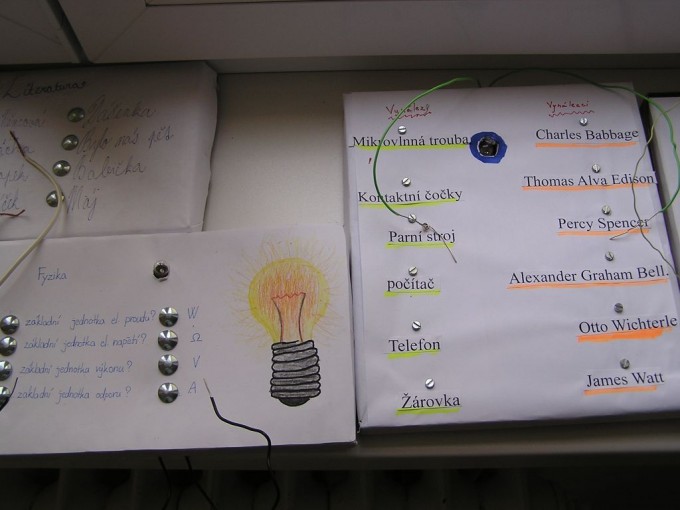 Literatura
Máchova
Babička
Máj
Fyzika
základní jednotka el. proudu? W
základní jednotka el. napětí? Ω
základní jednotka výkonu? V
základní jednotka odporu? A
Vynález Vynálezci
Mikrovlnná trouba Charles Babbage
Kontaktní čočky Thomas Alva Edison
Parní stroj Percy Spencer
počítač Alexander Graham Bell.
Telefon Otto Wichterle
Žárovka James Watt